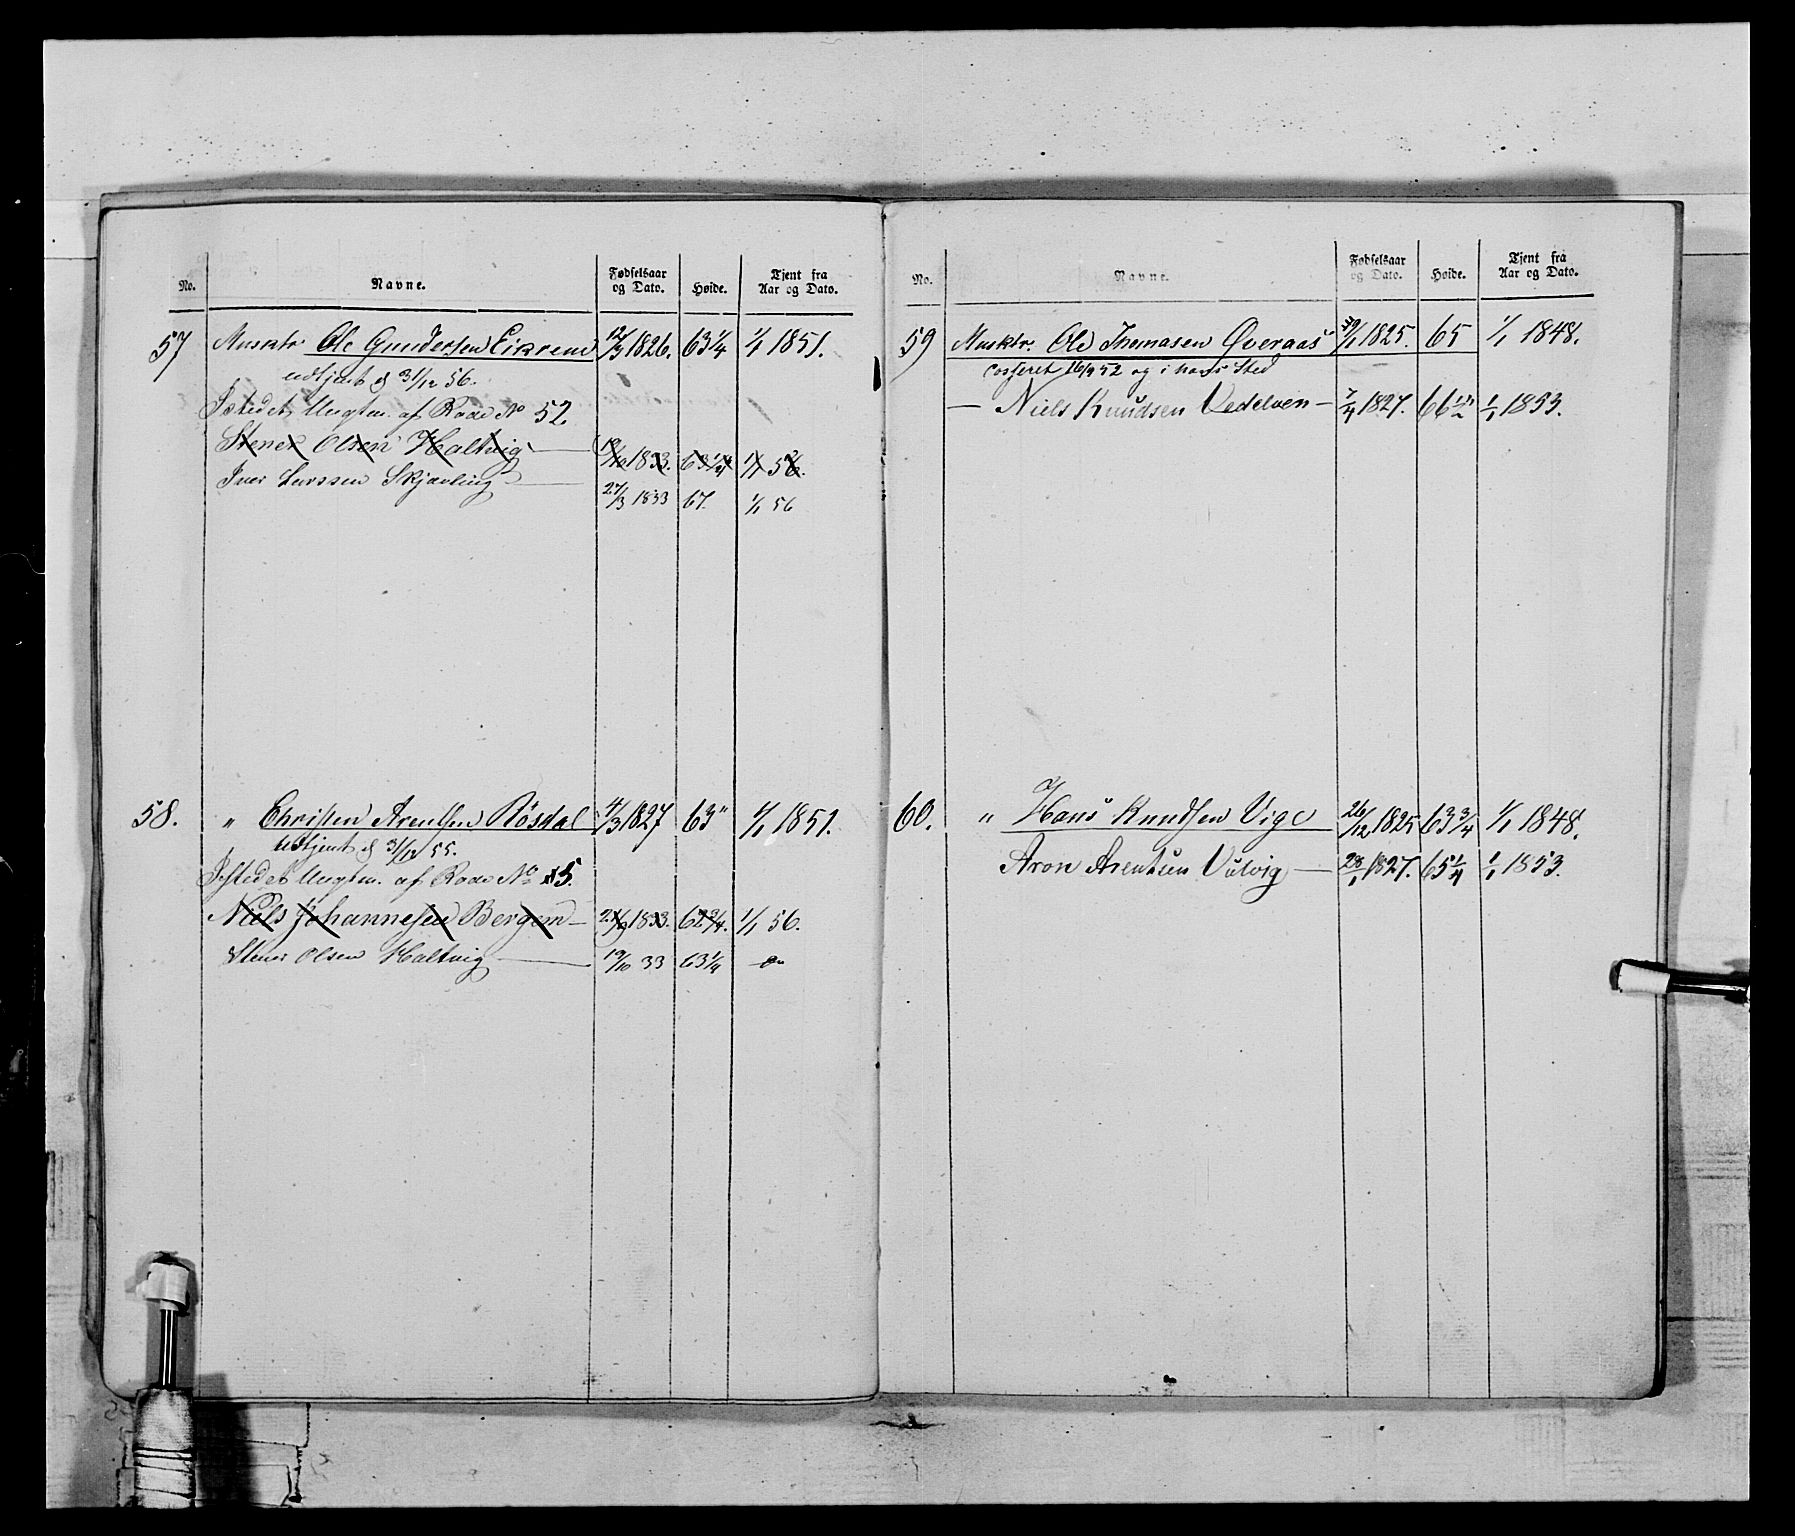 No. Navne. Fødselsaar og Dato. Høide. Tjent fra Aar og Dato.
57 Musktr Ole Gundersen Eikrem 12/3 1826. 63 1/4 1/1 1851.
udtjent d 31/12 56.
Istedet Ungtm. af Rode No 52.
Stener Olsen Haltvig 19/10 1833. 63 1/4 1/1 56.
Iver Larssen Skjævling 27/3 1833 67. 1/1 56
58. " Christen Arentsen Rösdal 4/3 1827 63" 1/1 1851.
Udtjent d 31/12 55.
Istedet Ungtm. af Rode No 5.
Niels Johannesen Bergem 1833. 62 3/4. 1/1 56.
Stener Olsen Haltvig 19/10 33 63 1/4
No. Navne. Fødselsaar og Dato. Høide. Tjent fra Aar og Dato.
59 Musktr. Ole Thomasen Överaas 1825. 65 1/1 1848.
Casseret 16/9 52 og i hans Sted
— Niels Knudsen Vedelven — 7/4 1827. 66 1/2" 1/1 1853.
60. " Hans Knudsen Vige 26/12 1825 63 3/4 1/1 1848.
Aron Arentsen Vulvig — 28/1 1827. 65 1/4 1/1 1853.